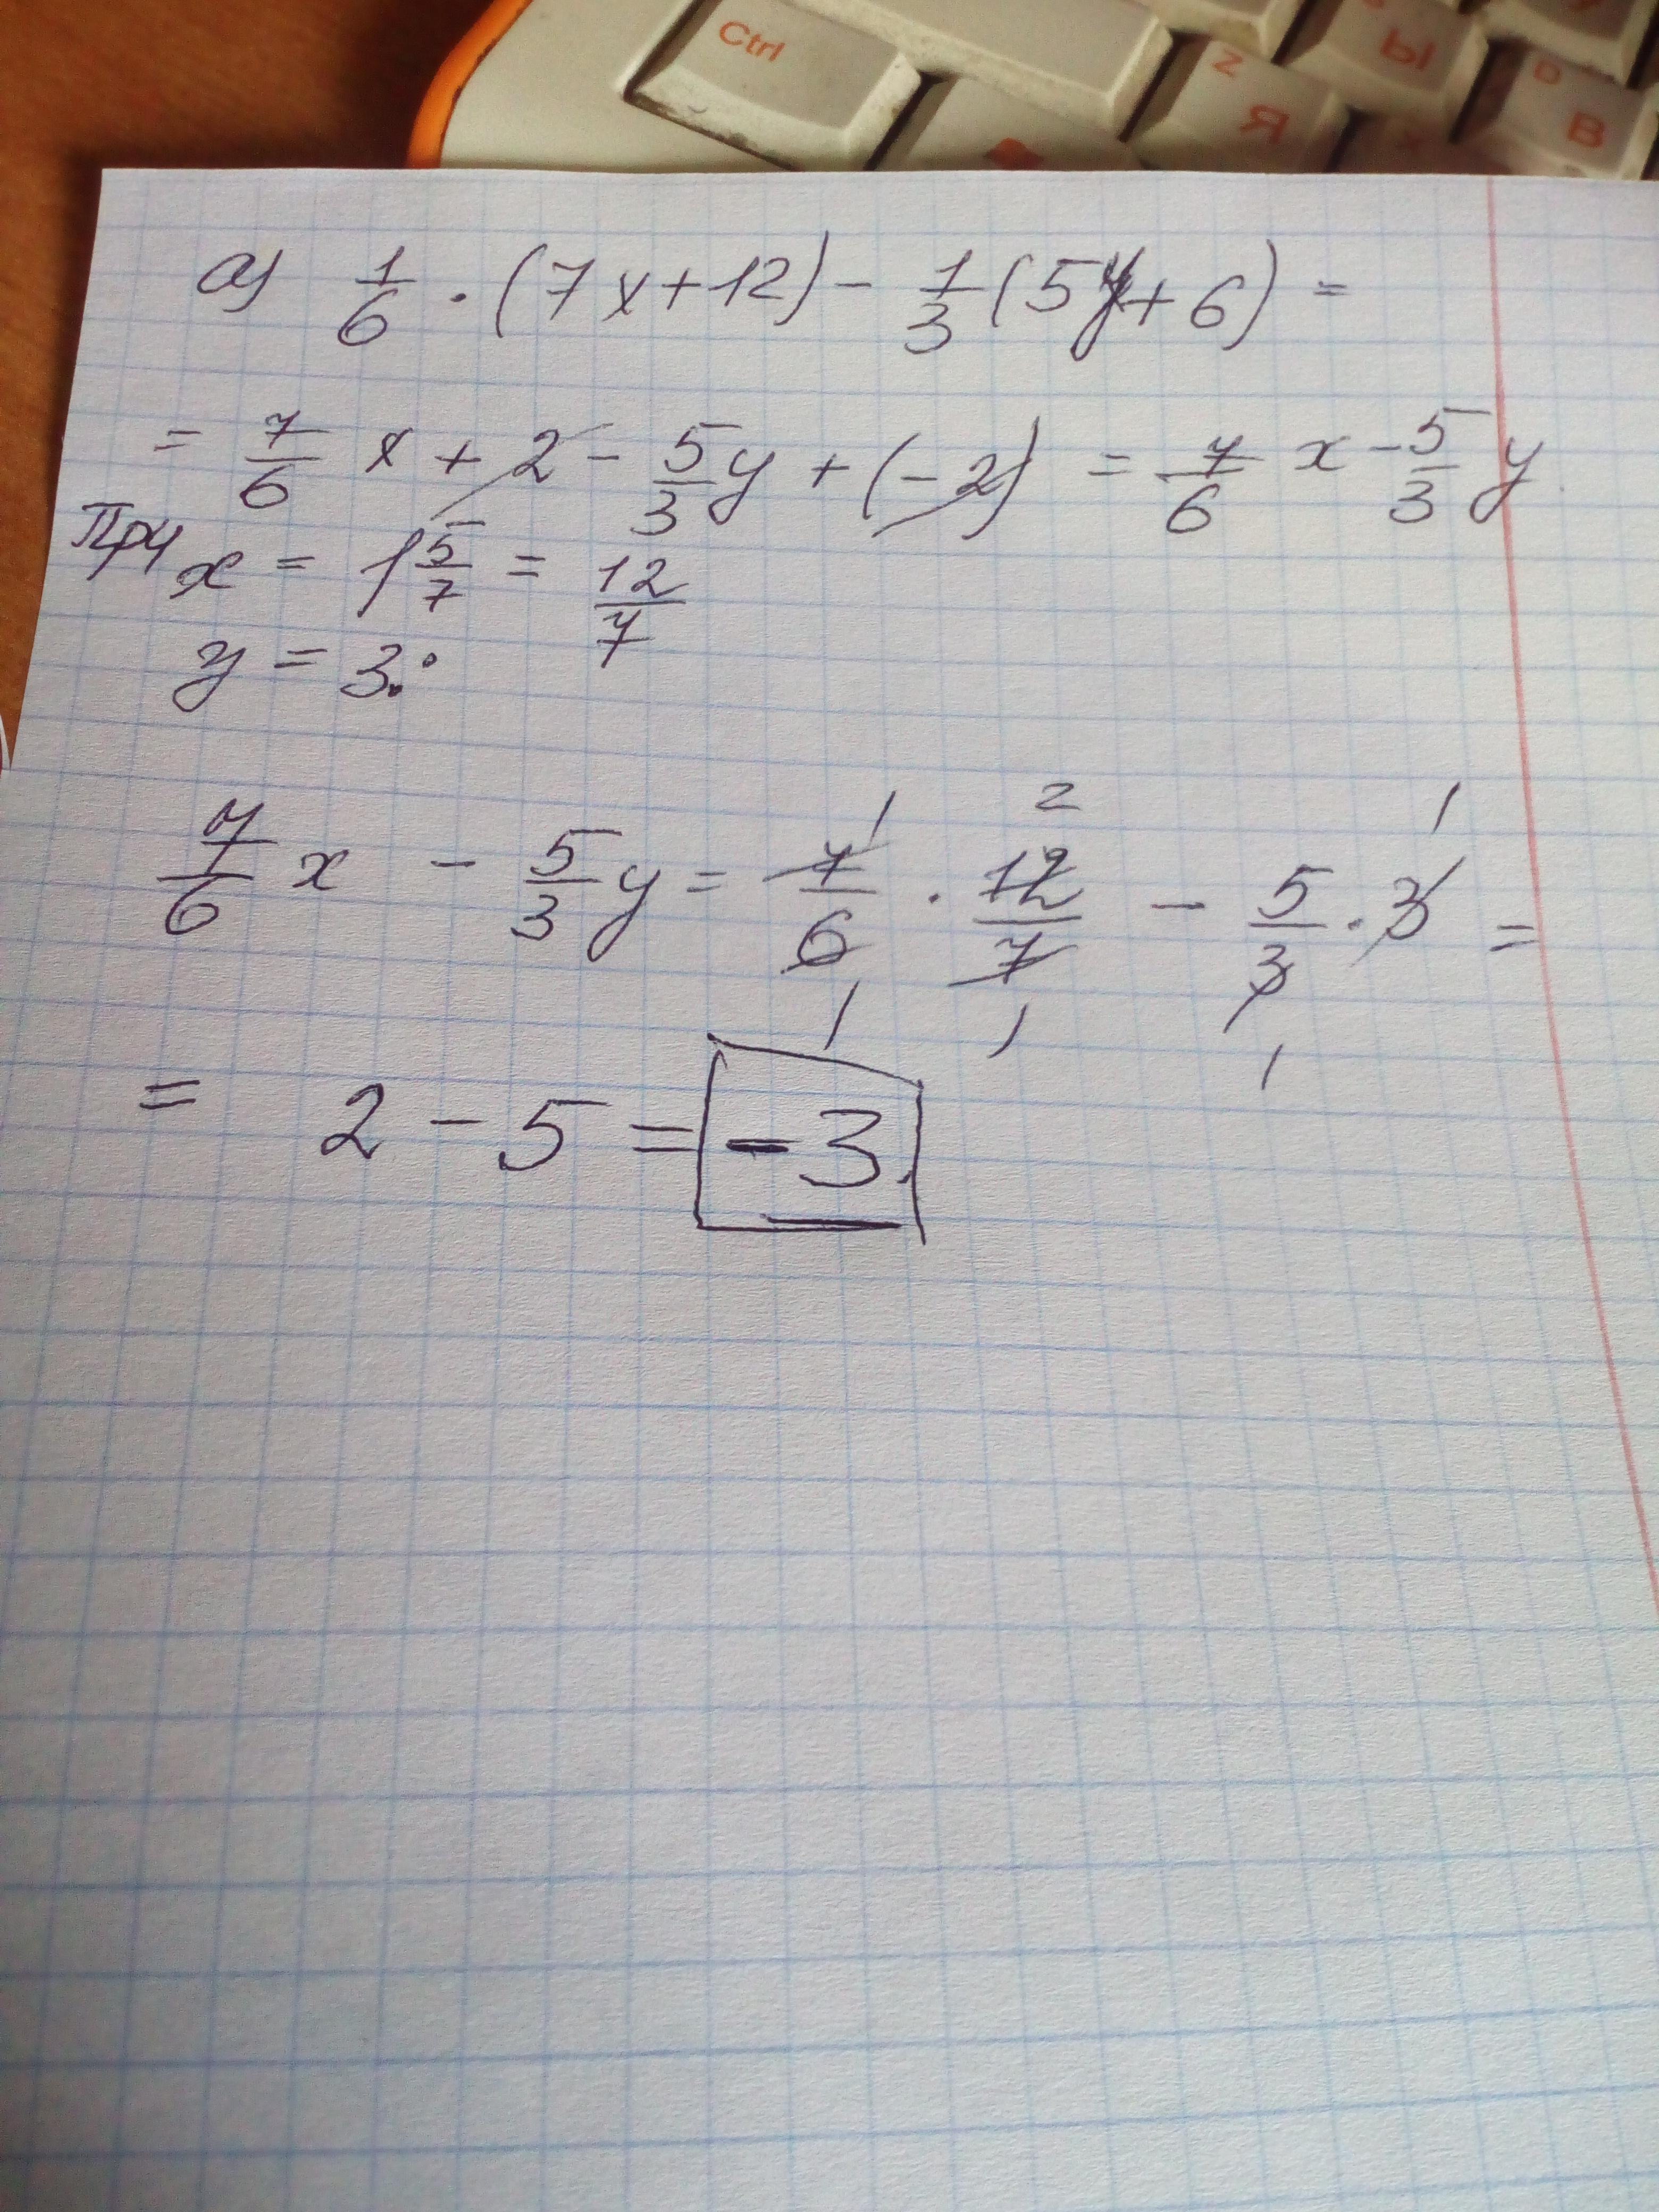 Ctrl Z Я Ы X D В
а) 1/6 · (7x + 12) - 1/3 (5y + 6) =
= 7/6 x + 2 - 5/3 y + (-2) = 7/6 x - 5/3 y
При x = 1 5/7 = 12/7
y = 3:
7/6 x - 5/3 y = 7/6 · 12/7 - 5/3 · 3 =
1 2 1
1 1 1
= 2 - 5 = -3.